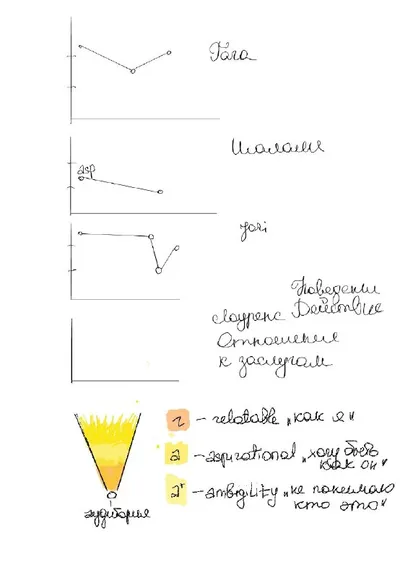 Гага
asp
Шаламе
Jori
Поведение
Лоуренс Действие
Отношения
к заслугам
r – relatable „как я“
a – aspirational „хочу быть
как он“
a+ – ambigility „не понимаю
кто это“
аудитория